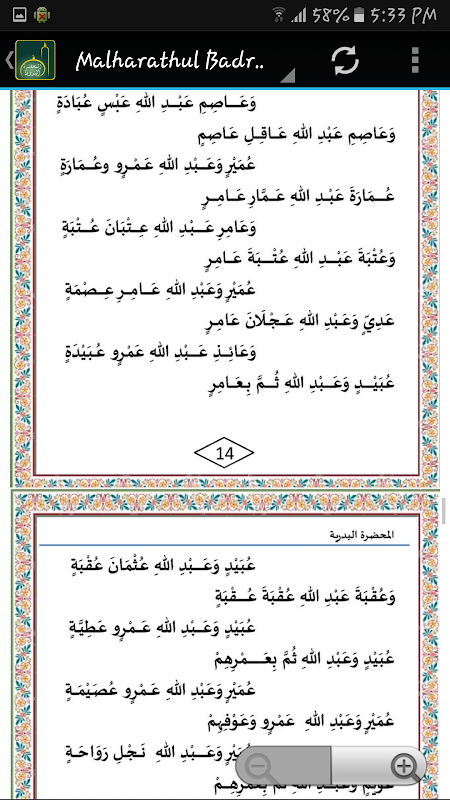 58% 5:33 PM
Malharathul Badr..
وَعَـــاصِمِ عَبْـدِ اللهِ عَبْسٍ عُبَادَةٍ
وَعَاصِمِ عَبْدِ اللهِ عَـاقِـلِ عَاصِمٍ
عُمَيْرٍ وَعَـبْدِ اللهِ عَـمْرٍو وعُـمَارَةٍ
عُـــمَارَةَ عَبْـدِ اللهِ عَـمَّارِ عَـامِـرٍ
وَعَامِرِ عَـــبْدِ اللهِ عِـتْبَانَ عُـتْبَةٍ
وَعُتْبَةَ عَبْـــدِ اللهِ عُتْـــبَةَ عَـامِرٍ
عُمَيْرٍ وَعَبْدِ اللهِ عَـامِـرِ عِـصْمَةٍ
عَدِيّ وَعَبْدِ اللهِ عَـجْلَانَ عَامِرٍ
وَعَـائِـذِ عَـــبْدِ اللهِ عَمْرٍو عُبَيْدَةٍ
عُبَيْـــدٍ وَعَـبْدِ اللهِ ثُـــمَّ بِـعَـامِرٍ
14
المحضرة البدرية
عُبَيْدٍ وَعَـــبْدِ اللهِ عُثْمَانَ عُقْبَةٍ
وَعُقْبَةَ عَبْدِ اللهِ عُقْبَةَ عُـــقْبَةٍ
عُبَيْدٍ وَعَـبْدِ اللهِ عَـــمْرٍو عَطِيَّةٍ
عُبَيْدٍ وَعَبْدِ اللهِ ثُمَّ بِعَـــمْرِهِمْ
عُمَيْرٍ وَعَبْدِ اللهِ عَـمْرٍو عُصَيْمَـةٍ
عُمَيْرٍ وَعَبْدِ اللهِ عَمْرٍو وَعَوْفِهِمْ
عُمَيْرٍ وَعَـــبْدِ اللهِ نَـجْلِ رَوَاحَـةٍ